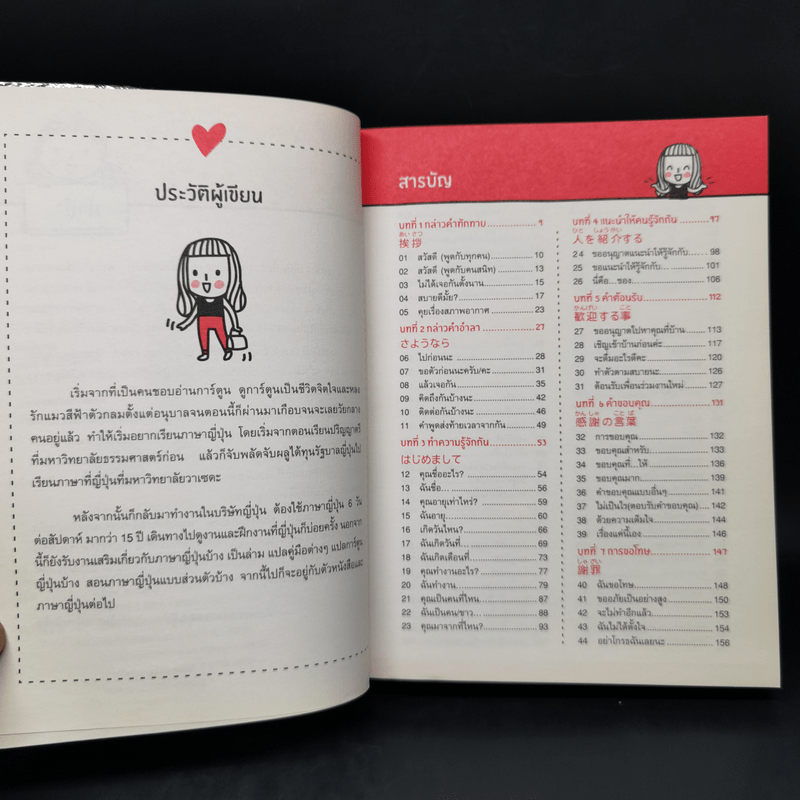 ประวัติผู้เขียน
เริ่มจากที่เป็นคนชอบอ่านการ์ตูน ดูการ์ตูนเป็นชีวิตจิตใจและหลง
รักแมวสีฟ้าตัวกลมตั้งแต่อนุบาลจนตอนนี้ก็ผ่านมาเกือบจนจะเลยวัยกลาง
คนอยู่แล้ว ทำให้เริ่มอยากเรียนภาษาญี่ปุ่น โดยเริ่มจากตอนเรียนปริญญาตรี
ที่มหาวิทยาลัยธรรมศาสตร์ก่อน แล้วก็จับพลัดจับผลูได้ทุนรัฐบาลญี่ปุ่นไป
เรียนภาษาที่ญี่ปุ่นที่มหาวิทยาลัยวาเซดะ
หลังจากนั้นก็กลับมาทำงานในบริษัทญี่ปุ่น ต้องใช้ภาษาญี่ปุ่น 6 วัน
ต่อสัปดาห์ มากว่า 15 ปี เดินทางไปดูงานและฝึกงานที่ญี่ปุ่นก็บ่อยครั้ง นอกจาก
นี้ก็ยังรับงานเสริมเกี่ยวกับภาษาญี่ปุ่นบ้าง เป็นล่าม แปลคู่มือต่างๆ แปลการ์ตูน
ญี่ปุ่นบ้าง สอนภาษาญี่ปุ่นแบบส่วนตัวบ้าง จากนี้ไปก็จะอยู่กับตัวหนังสือและ
ภาษาญี่ปุ่นต่อไป
สารบัญ
บทที่ 1 กล่าวคำทักทาย 9
あいさつ
挨拶
01 สวัสดี (พูดกับทุกคน) 10
02 สวัสดี (พูดกับคนสนิท) 13
03 ไม่ได้เจอกันตั้งนาน 15
04 สบายดีมั้ย? 17
05 คุยเรื่องสภาพอากาศ 23
บทที่ 2 กล่าวคำอำลา 27
さようなら
06 ไปก่อนนะ 28
07 ขอตัวก่อนนะครับ/คะ 31
08 แล้วเจอกัน 35
09 คิดถึงกันบ้างนะ 42
10 ติดต่อกันบ้างนะ 45
11 คำพูดส่งท้ายเวลาจากกัน 49
บทที่ 3 ทำความรู้จักกัน 53
はじめまして
12 คุณชื่ออะไร? 54
13 ฉันชื่อ... 56
14 คุณอายุเท่าไหร่? 59
15 ฉันอายุ 62
16 เกิดวันไหน? 66
17 ฉันเกิดวันที่ 69
18 ฉันเกิดเดือนที่ 73
19 คุณทำงานอะไร? 77
20 ฉันทำงาน 79
21 คุณเป็นคนที่ไหน 87
22 ฉันเป็นคน/ชาว... 88
23 คุณมาจากที่ไหน? 93
บทที่ 4 แนะนำให้คนรู้จักกัน 97
ひと しょうかい
人を紹介する
24 ขออนุญาตแนะนำให้รู้จักกับ 98
25 ขอแนะนำให้รู้จักกับ... 101
26 นี่คือ...ของ 106
บทที่ 5 คำต้อนรับ 112
かんげい こと
歓迎する事
27 ขออนุญาตไปหาคุณที่บ้าน 113
28 เชิญเข้าบ้านก่อนค่ะ 117
29 จะดื่มอะไรดีคะ 120
30 ทำตัวตามสบายนะ 127
31 ต้อนรับเพื่อนร่วมงานใหม่ 127
บทที่ 6 คำขอบคุณ 131
かんしゃ ことば
感謝の言葉
32 การขอบคุณ 132
33 ขอบคุณสำหรับ 135
34 ขอบคุณที่...ให้ 136
35 ขอบคุณมาก 139
36 คำขอบคุณแบบอื่นๆ 141
37 ไม่เป็นไร(ตอบรับคำขอบคุณ) 142
38 ด้วยความเต็มใจ 144
39 เรื่องแค่นี้เอง 146
บทที่ 7 การขอโทษ 147
しゃざい
謝罪
40 ฉันขอโทษ 148
41 ขออภัยเป็นอย่างสูง 150
42 จะไม่ทำอีกแล้ว 153
43 ฉันไม่ได้ตั้งใจ 154
44 อย่าโกรธฉันเลยนะ 156